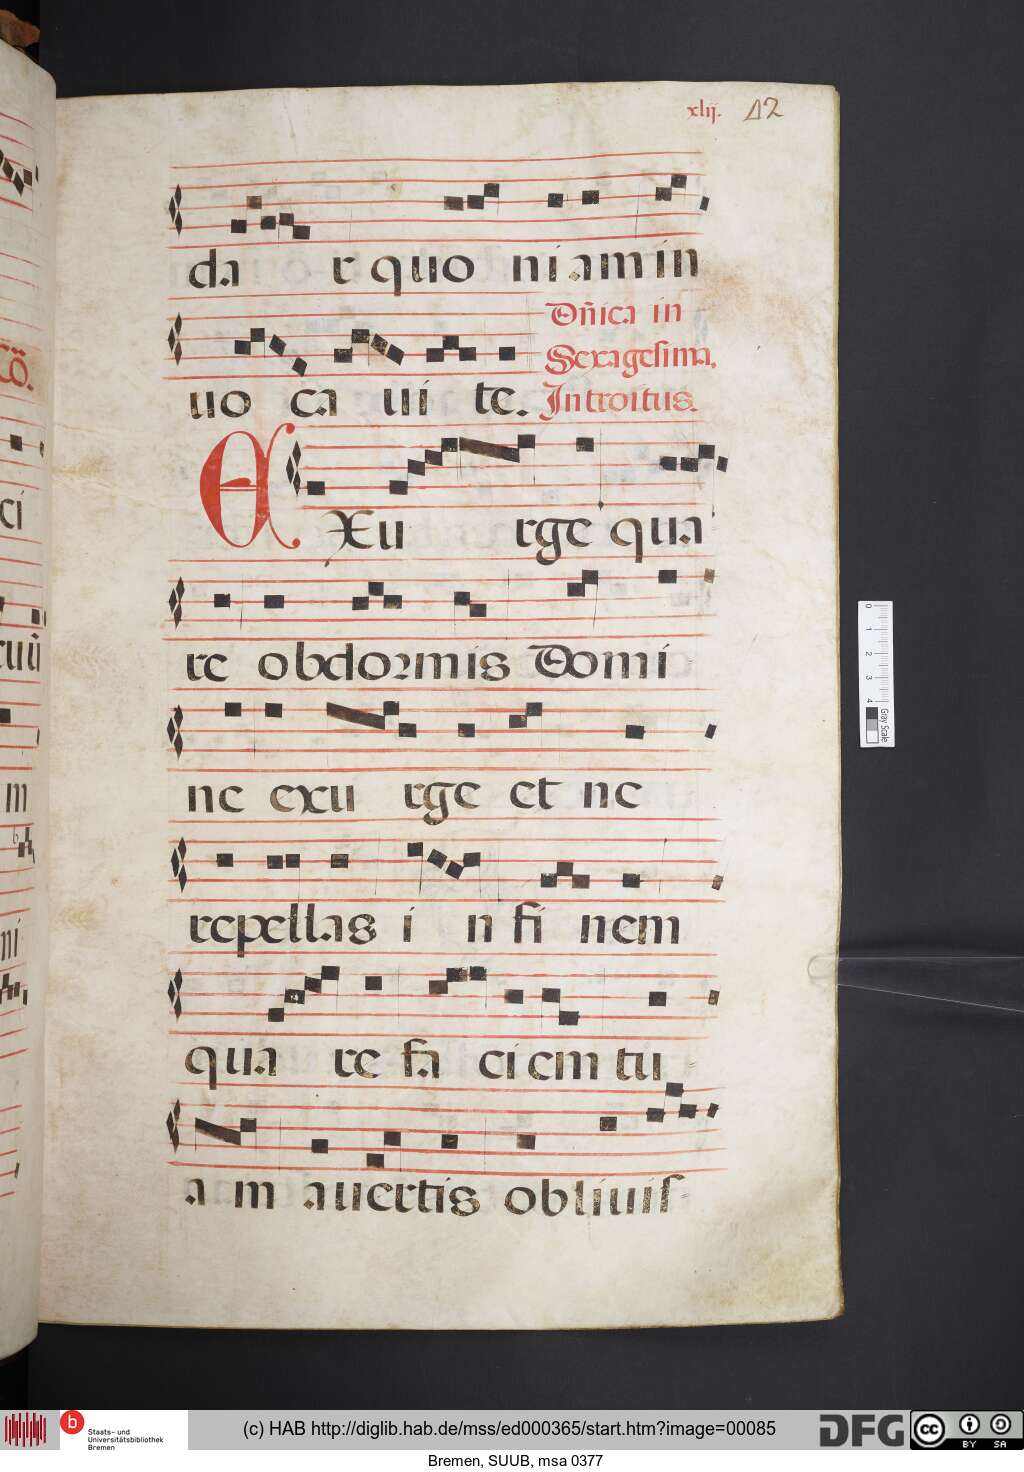 xlij. 42
da r quo niam in
uo ca ui te. Dñica in
Sexagesima.
Introitus.
EXu rge qua
re obdormis Domi
ne exu rge et ne
repellas i n fi nem
qua re fa ciem tu
a m auertis obliuis
0 1 2 3 4
Gray Scale
b Staats- und
Universitätsbibliothek
Bremen
(c) HAB http://diglib.hab.de/mss/ed000365/start.htm?image=00085
DFG
cc BY SA
Bremen, SUUB, msa 0377